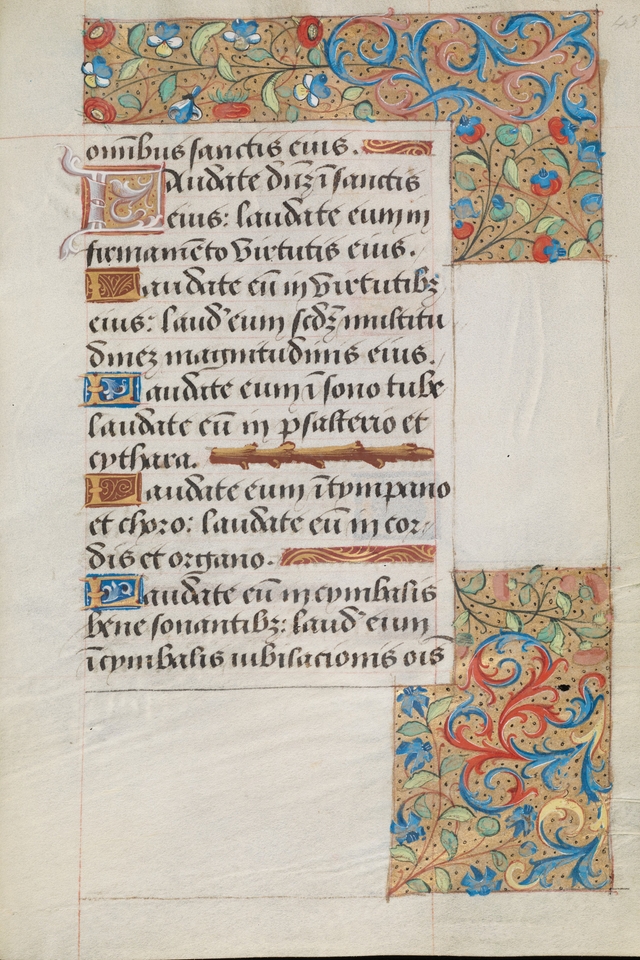 omībus sanctis eius.
Laudate dn̄ꝫ ī sanctis
eius: laudate eum in
firmamēto virtutis eius.
Laudate eū in virtutibꝫ
eius: laud' eum scd̄ꝫ multitu
dinez magnitudinis eius.
Laudate eum ī sono tube
laudate eū in psalterio et
cythara.
Laudate eum ī tympano
et choro: laudate eū in cor
dis et organo.
Laudate eū in cymbalis
bene sonantibꝫ: laud' eum
ī cymbalis iubilacionis oīs